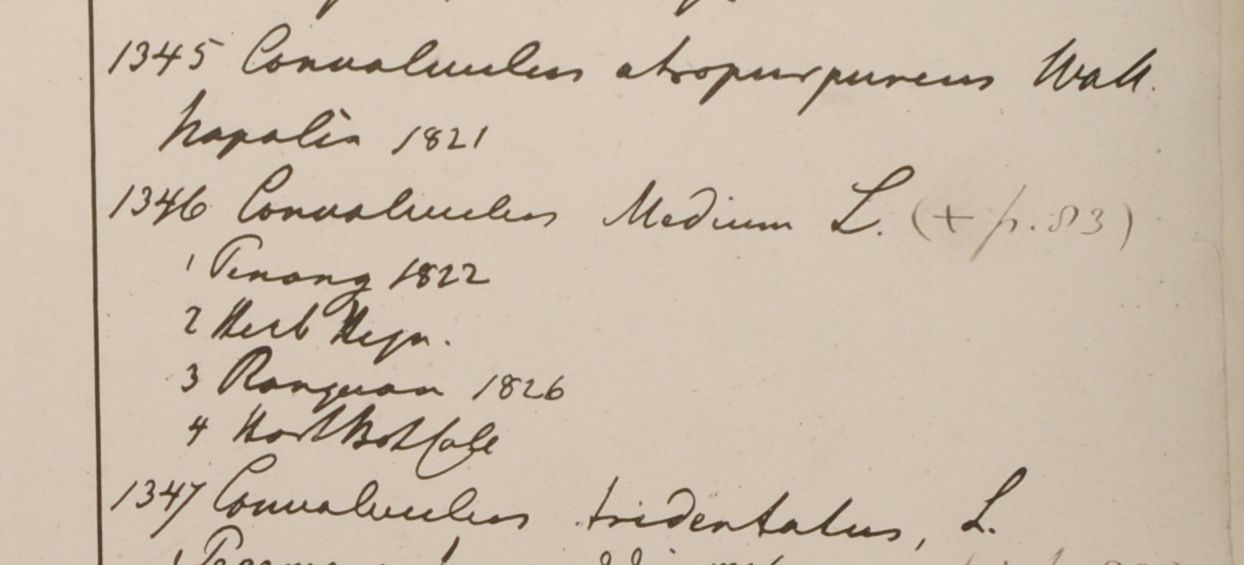 1345 Convolvulus atropurpureus Wall.
Napalia 1821
1346 Convolvulus Medium L. (+ p. 83)
1 Penang 1822
2 Herb Heyn.
3 Rangoon 1826
4 Hort Bot Calc
1347 Convolvulus tridentatus, L.